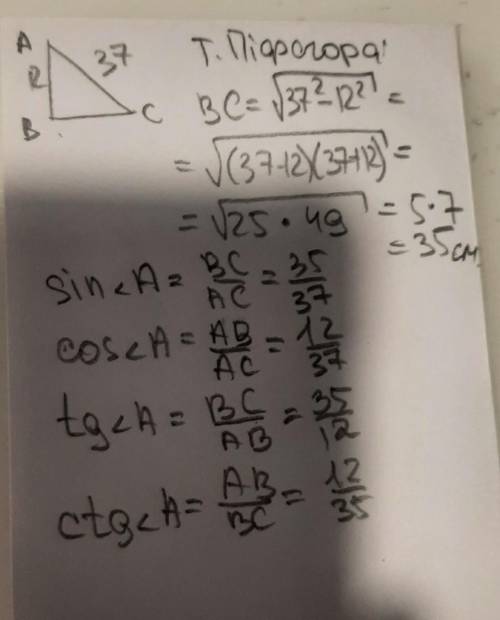 A
37
12
B
C
Т. Піфагора:
BC = √37² - 12² =
= √(37-12)(37+12) =
= √25 • 49 = 5•7
= 35 см
sin<A = BC/AC = 35/37
cos<A = AB/AC = 12/37
tg<A = BC/AB = 35/12
ctg<A = AB/BC = 12/35